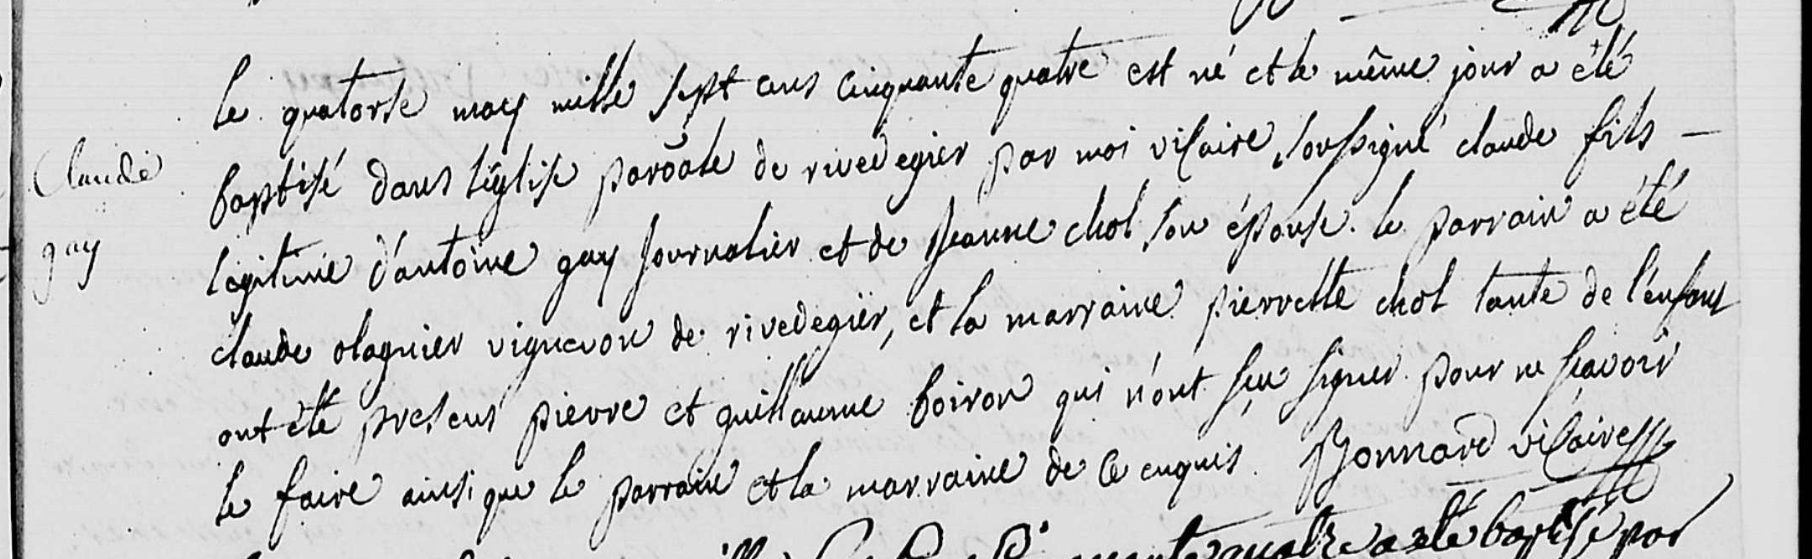 le quatorse may mille sept cens cinquante quatre est né et le même jour a été
Claude
baptisé dans l'église paroâle de rivedegier par moi vicaire soussigné claude fils —
gay
légitime d'antoine gay journalier et de Jeanne chol son épouse. le parrain a été
claude olagnier vigneron de rivedegier, et la marraine pierrette chol tante de l'enfant
ont été presens pierre et guillaume boiron qui n'ont sçu signer pour ne sçavoir
le faire ainsi que le parrain et la marraine de ce enquis. Bonnard vicaire
quatre a été baptisé par